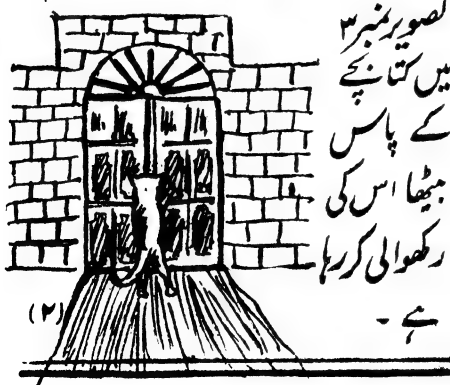 تصویر نمبر ۳
میں کتا بچے
کے پاس
بیٹھا اس کی
رکھوالی کر رہا
ہے ۔
(۲)